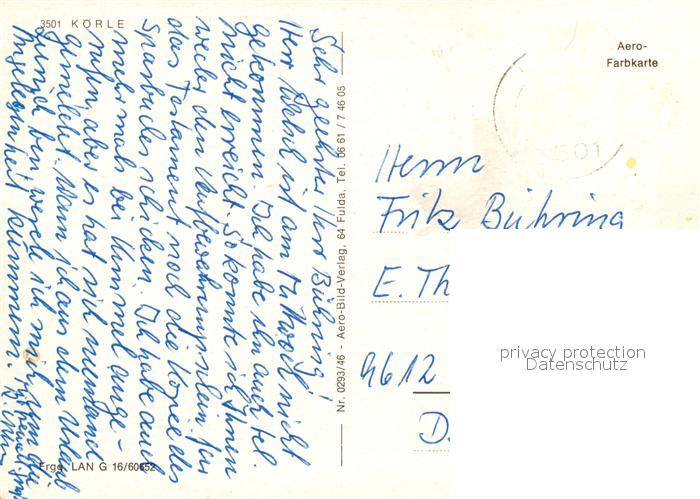 3501 KÖRLE
Sehr geehrter Herr Bühring!
Herr ist am Mittwoch nicht
gekommen. Ich habe ihn auch tel.
nicht erreicht. So konnte ich Ihnen
weder den Aufbewahrungsschein für
das Testament noch die Kopie des
Sparbuches schicken. Ich habe auch
mehrmals bei Kimmel ange-
rufen, aber es hat sich niemand
gemeldet. Wenn ich aus dem Urlaub
zurück bin, werde ich mich um die
Angelegenheit kümmern.
Frgg. LAN G 16/60652
Nr. 0293/46 - Aero-Bild-Verlag, 64 Fulda, Tel. 06 61 / 7 46 05
Aero-
Farbkarte
501
Herrn
Fritz Bühring
E. Th
4612
D.
privacy protection
Datenschutz